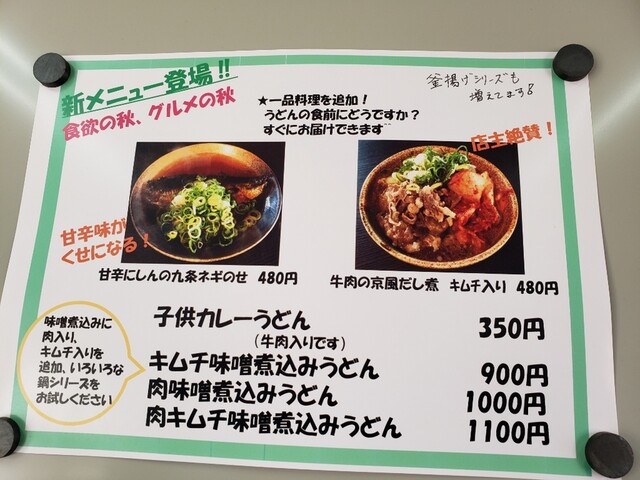 新メニュー登場!!
食欲の秋、グルメの秋
★一品料理を追加！
うどんの食前にどうですか？
すぐにお届けできます^^
釜揚げシリーズも
増えてます!
店主絶賛！
甘辛味が
くせになる！
甘辛にしんの九条ネギのせ 480円
牛肉の京風だし煮 キムチ入り 480円
味噌煮込みに
肉入り、
キムチ入りを
追加、いろいろな
鍋シリーズを
お試しください
子供カレーうどん 350円
(牛肉入りです)
キムチ味噌煮込みうどん 900円
肉味噌煮込みうどん 1000円
肉キムチ味噌煮込みうどん 1100円